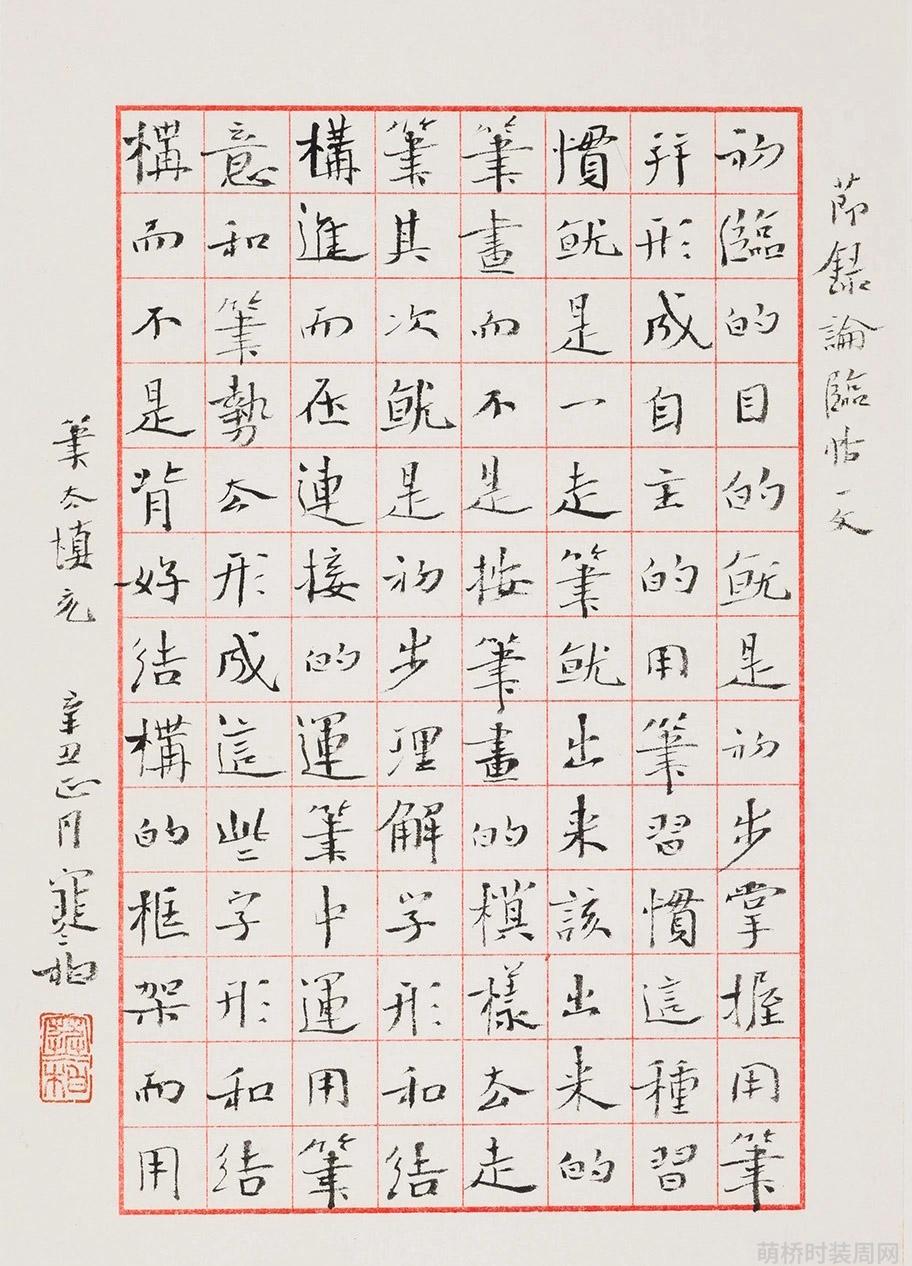 節録論臨帖一文
初臨的目的就是初步掌握用筆
并形成自主的用筆習慣這種習
慣就是一走筆就出来該出来的
筆畫而不是按筆畫的模樣去走
筆其次就是初步理解字形和结
構進而在連接的運筆中運用筆
意和筆勢去形成這些字形和结
構而不是背好结構的框架而用
筆去填充 辛丑正月
萌桥时装周网